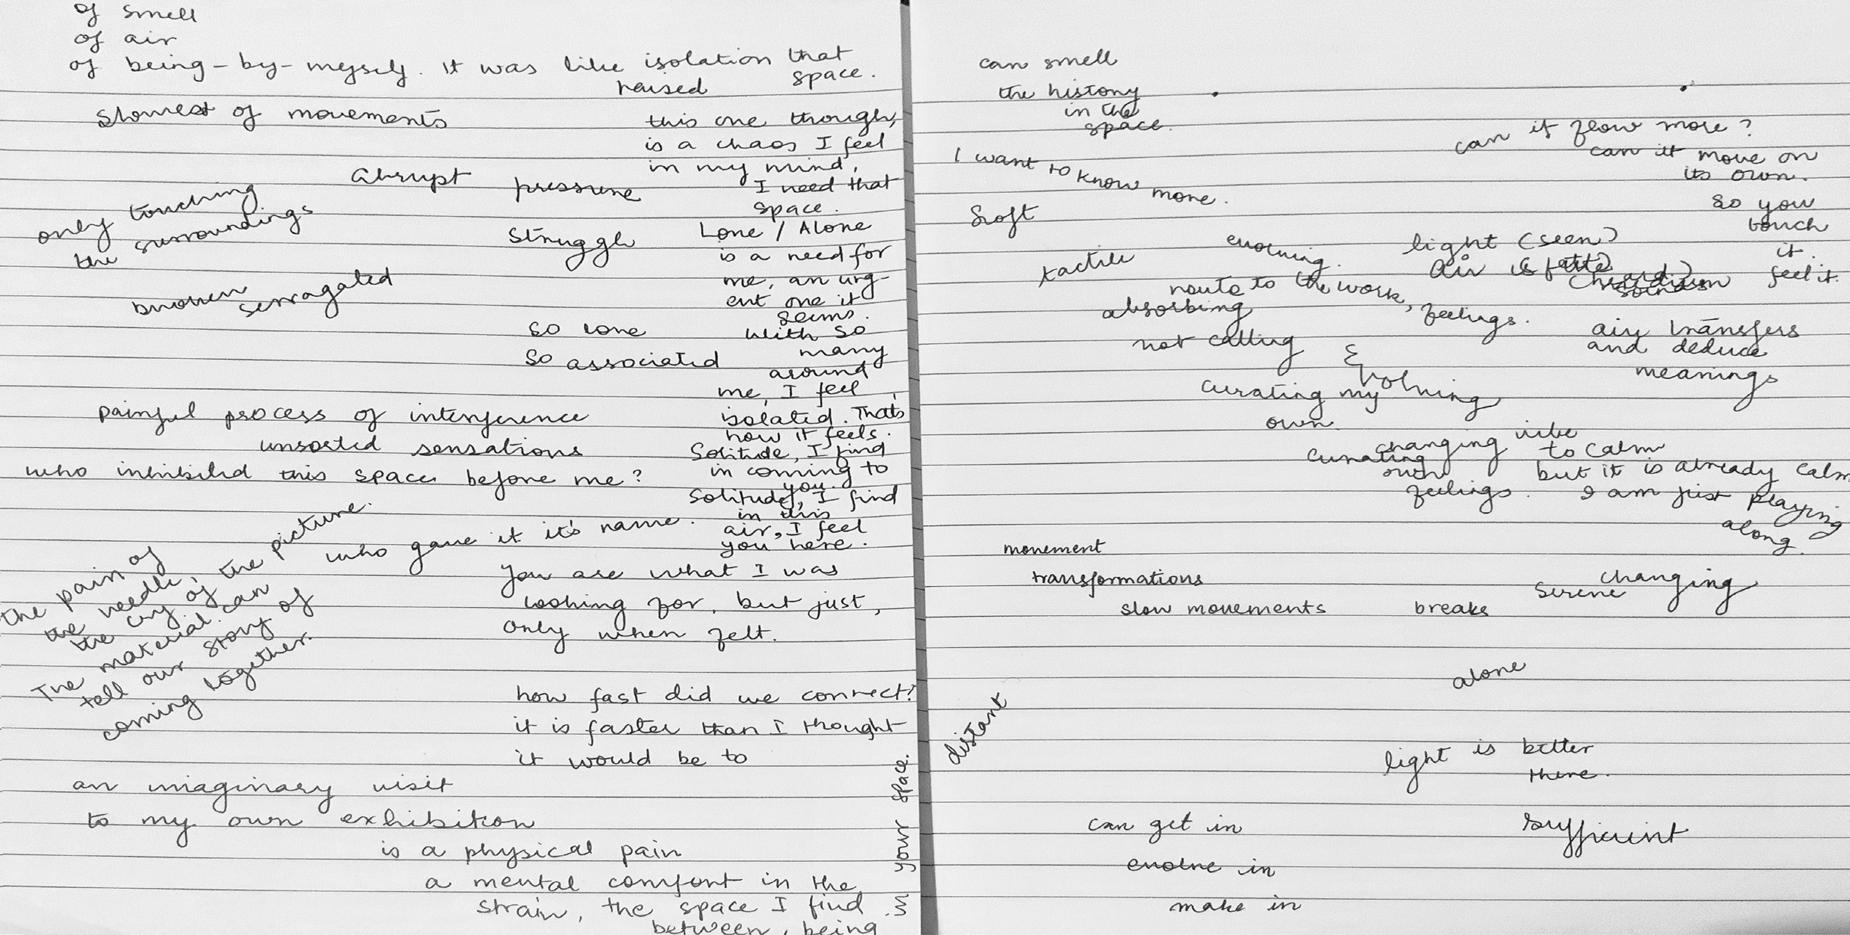 of smell
of air
of being-by-myself. It was like isolation that
raised space.
slowest of movements
abrupt pressure
only touching
the surroundings
struggle
broken
serragated
so lone
so associated
painful process of interference
unsorted sensations
who inhibited this space before me?
who gave it it's name.
the pain of
the needle, the picture.
the cry of
the material can
tell our story of
coming together.
this one though,
is a chaos I feel
in my mind,
I need that
space.
Lone / Alone
is a need for
me, an urg-
ent one it
seems.
with so
many
around
me, I feel
isolated. That's
how it feels.
Solitude, I find
in coming to
you.
Solitude, I find
in this
air, I feel
you here.
You are what I was
looking for, but just,
only when felt.
how fast did we connect?
it is faster than I thought
it would be to
an imaginary visit
to my own exhibition
is a physical pain
a mental comfort in the
strain, the space I find
between, being
in your space.
can smell
the history
in the
space.
I want to know more.
Soft
tactile
evolving.
route to the work,
absorbing
feelings.
not calling
&
evolving
curating my
own
changing vibe
to calm
curating
own
feelings.
but it is already calm
I am just playing
along.
can it flow more?
can it move on
its own.
so you
touch
it.
feel it.
light (seen)
air
air transfers
and deduce
meanings
movement
transformations
slow movements
breaks
serene
changing
alone
distant
light is better
there.
can get in
evolve in
make in
sufficient